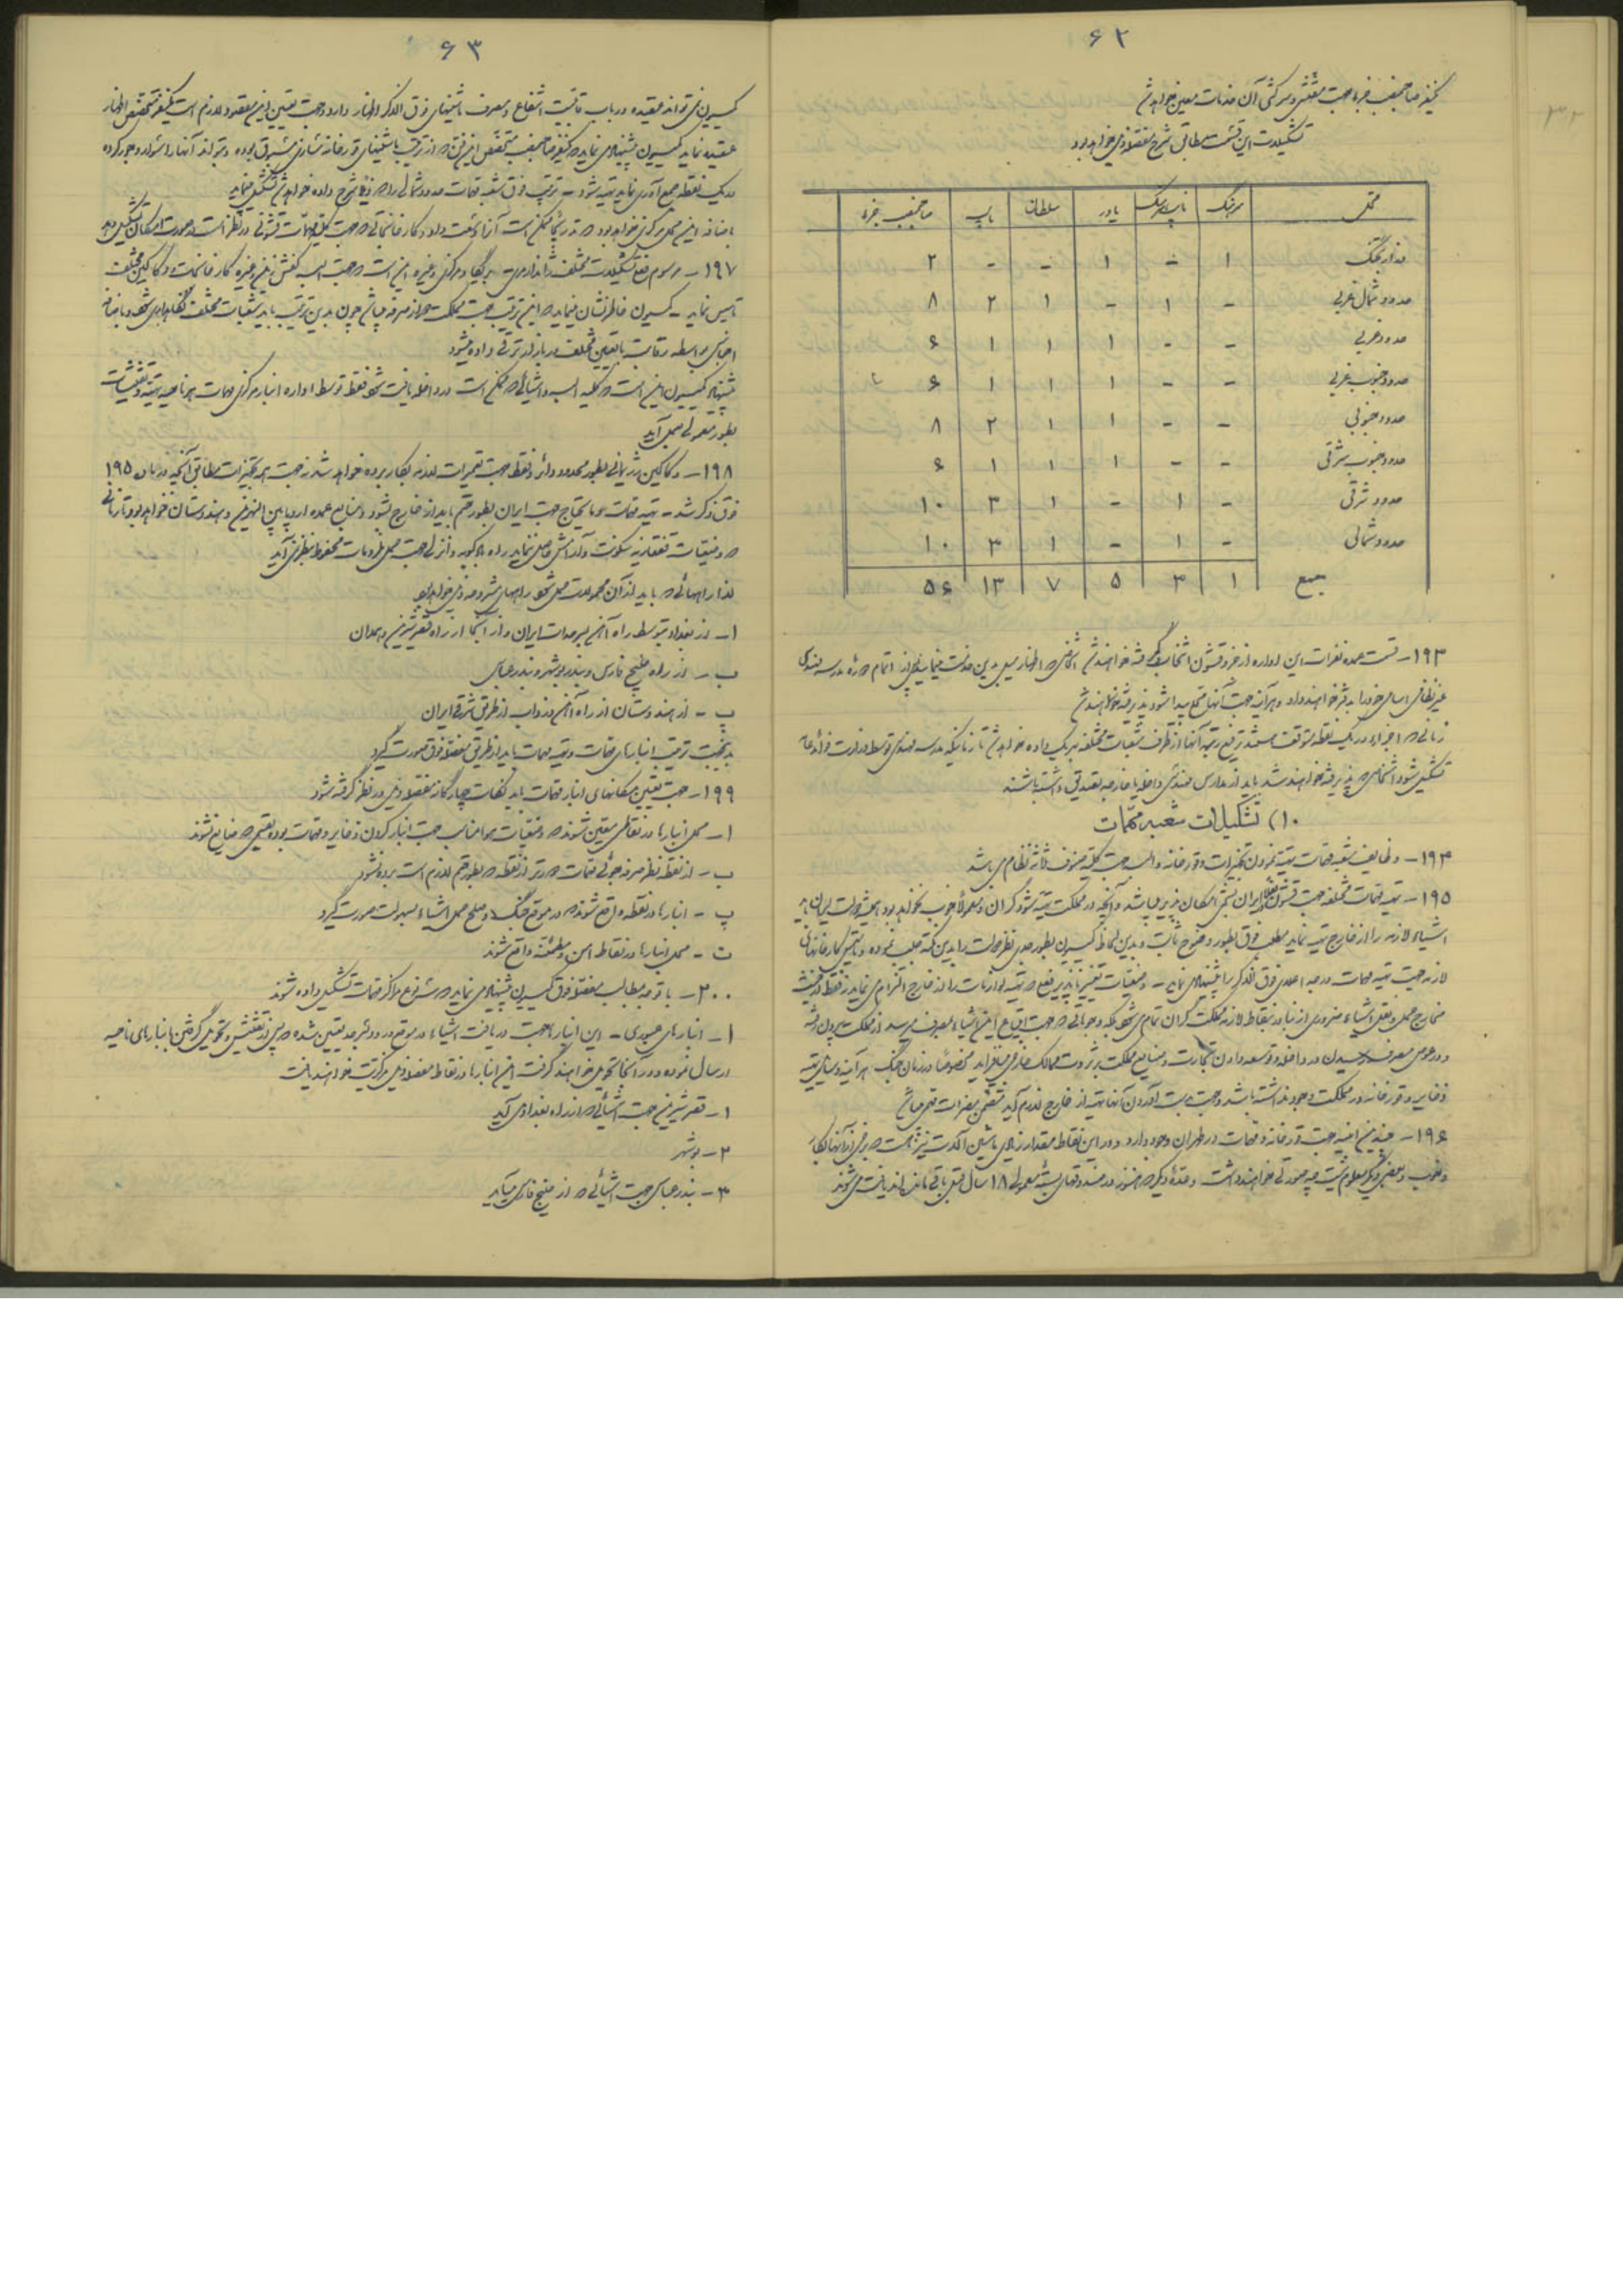 ۶۲
یکنفر صاحبمنصب جزء با جهت مفتشی و سرکشی آن خدمات معین خواهد شد
تشکیلات این قسمت مطابق شرح مفصلهٔ ذیل خواهد بود
محل سرهنگ نایب سرهنگ یاور سلطان نایب صاحبمنصب جزء
وزارت جنگ ۱ - ۱ - - ۲
حدود شمال غربی - ۱ - ۱ ۲ ۸
حدود غربی - - ۱ ۱ ۱ ۶
حدود جنوب غربی - - ۱ ۱ ۱ ۶
حدود جنوبی - - ۱ ۱ ۲ ۸
حدود جنوب شرقی - - ۱ ۱ ۱ ۶
حدود شرقی - ۱ - ۱ ۳ ۱۰
حدود شمالی - ۱ - ۱ ۳ ۱۰
جمع ۱ ۳ ۵ ۷ ۱۳ ۵۶
۱۹۳ - قسمت عمده نفرات این اداره از جزو قشون انتخاب گرفته خواهند شد اشخاصی که اظهار میل بدین خدمت مینمایند پس از اتمام دوره مدرسه مهندسی
غیر نظامی اسامی خود را به دفتر خواهند داد و هر آینه جهت آنها محل پیدا شود پذیرفته خواهند شد
زمانی که اجزاء در یک نقطه متوقف هستند ترفیع رتبه آنها از طرف شعبات مختلفه بهر یک داده خواهد شد تا زمانیکه مدرسه مهندسی توسط وزارت فوائد عامه
تشکیل شود اشخاصی که پذیرفته خواهند شد باید از مدارس مهندسی داخله یا خارجه تصدیق داشته باشند
۱۰) تشکیلات شعبه مهمات
۱۹۴ - وظایف شعبه مهمات تهیه نمودن تجهیزات و قورخانه و البسه جهت کلیه صنوف ثلاثه نظام می باشد
۱۹۵ - تهیه مهمات مختلفه جهت قشون ایران امکان پذیر میباشد و آنچه در مملکت تهیه شود گران و معمولاً خوب نخواهد بود دولت ایران باید
اشیاء لازمه را از خارج تهیه نماید مطلب فوق بطور وضوح ثابت و بدین لحاظ کمیسیون بطور جدی نظر دولت را بدین نکته جلب نموده و تأسیس کارخانهائی
لازمه جهت تهیه مهمات درجه اعلای فوق الذکر را پیشنهاد نمی نماید - وضعیات تغییر ناپذیر فعلی که تهیه لوازمات را از خارج الزام می نماید نه فقط در قیمت
مخارج حمل و نقل اشیاء ضروری از بنادر بنقاط لازمه مملکت گران تمام می شود بلکه وجوهاتی که جهت ابتیاع این اشیاء بمصرف میرسد از مملکت بیرون رفته
و در عوض مصرف رسیدن در داخله و توسعه دادن تجارت و صنایع مملکت بر ثروت ممالک خارجی میافزاید مخصوصاً در زمان جنگ هر آینه وسایل تهیه
ذخایر و قورخانه در مملکت وجود نداشته باشد و جهت بدست آوردن آنها تهیه از خارج لازم آید متضمن مضرات قطعی میباشد
۱۹۶ - چندین ابنیه جهت قورخانه و مهمات در طهران وجود دارد و در این نقاط مقدار زیادی ماشین آلات نیز هست که برخی از آنها بکار
و خوب و بعضی دیگر معلوم نیست چه صورتی خواهند داشت و عدهٔ دیگر که هنوز در صندوقهای بسته معمولی ۱۸ سال قبل باقی مانده اند یافت می شوند
۶۳
کمیسیون نمی تواند عقیده در باب قابلیت انتفاع و مصرف ماشینهای فوق الذکر اظهار دارد و جهت تعیین این مقصود لازم است یکنفر متخصص اظهار
عقیده نماید کمیسیون پیشنهاد می نماید که یکنفر صاحبمنصب متخصص این فن که از ترتیب ماشینهای قورخانه سازی مسبوق بوده و بتواند آنها را سوار و جور کرده
در یک نقطه جمع آوری نماید تهیه شود - ترتیب فوق شعبه مهمات حدود شمالی را که ذیلاً شرح داده خواهد شد تشکیل مینماید
باضافه این محل مرکزی خواهد بود که بتدریج ممکن است آنرا وسعت داد و کارخانجاتی که جهت کلیه مهمات قشونی در نظر است در صورت امکان تشکیل داد
۱۹۷ - مرسوم فعلی تشکیلات مختلف ژاندارمری - بریگاد مرکزی و غیره این است که جهت البسه کفش زین و غیره کارخانجات و دکاکین مختلف
تأسیس نماید - کمیسیون خاطرنشان مینماید که این ترتیب جهت مملکت دور از صرفه میباشد چون بدین ترتیب باید شعبات مختلف نگاهداری شود و باضافه
اجناس بواسطه رقابت مابین مختلف در بازار ترقی داده میشود
پیشنهاد کمیسیون این است که کلیه البسه و اشیائی که ممکن است در داخله یافت شود فقط توسط اداره انبار مرکزی مهمات هر ناحیه تهیه و تفتیشات
بطور معمولی بعمل آید
۱۹۸ - دکاکین بطور محدود دائر و فقط جهت تعمیرات لازمه بکار برده خواهد شد جهت تجهیزات مطابق آنچه در ماده ۱۹۵
فوق ذکر شد - تهیه مهمات مایحتاج جهت ایران بطور حتم باید از خارج بشود و منابع عمده اروپا بین النهرین و هندوستان خواهد بود تا زمانی
که وضعیات قفقازیه سکونت و آرامش حاصل ننماید راه بادکوبه و انزلی جهت حمل ملزومات محفوظ بنظر نمی آید
لذا راههائی که باید از آن محمولات حمل شود راههای مشروحه ذیل خواهد بود
ا - از بغداد بتوسط راه آهن بسرحدات ایران و از آنجا از راه قصر شیرین و همدان
ب - از راه خلیج فارس و بندر بوشهر و بندر عباس
پ - از هندوستان از راه آهن دزداب از طریق شرقی ایران
بدینجهت ترتیب انبارهای مهمات و تهیه مهمات باید از طریق مفصلهٔ فوق صورت گیرد
۱۹۹ - جهت تعیین مکانهای انبار مهمات باید نکات چهارگانه مفصلهٔ ذیل در نظر گرفته شود
ا - محل انبارها در نقاطی معین شوند که وضعیات هوا مناسب جهت انبار کردن ذخایر و مهمات بوده بقسمی که ضایع نشوند
ب - از نقطه نظر صرفه جوئی مهمات دورتر از نقطه که بطور حتم لازم است برده نشود
پ - انبارها در نقطه واقع شوند که در موقع جنگ و صلح حمل اشیاء بسهولت صورت گیرد
ت - محل انبارها در نقاط امن و مطمئنه واقع شوند
۲۰۰ - با توجه بمطالب مفصلهٔ فوق کمیسیون پیشنهاد می نماید که سه نوع مراکز مهمات تشکیل داده شوند
ا - انبارهای عبوری - این انبارها جهت دریافت اشیاء در موقع ورود بسرحد تعیین شده که پس از تفتیش و تحویل گرفتن بانبارهای ناحیه
ارسال نموده و در آنجا تحویل خواهند گرفت این انبارها در نقاط مفصلهٔ ذیل مرکزیت خواهند یافت
۱ - قصر شیرین جهت اشیائی که از راه بغداد می آید
۲ - بوشهر
۳ - بندر عباس جهت اشیائی که از خلیج فارس میآید